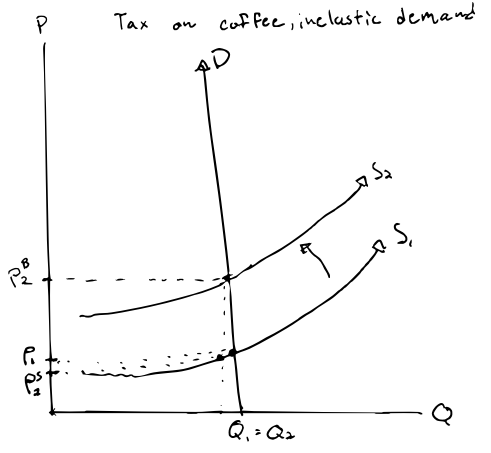 P Tax on coffee, inelastic demand
D
S₂
S₁
P₂ᴮ
P₁
P₂ˢ
Q
Q₁ = Q₂